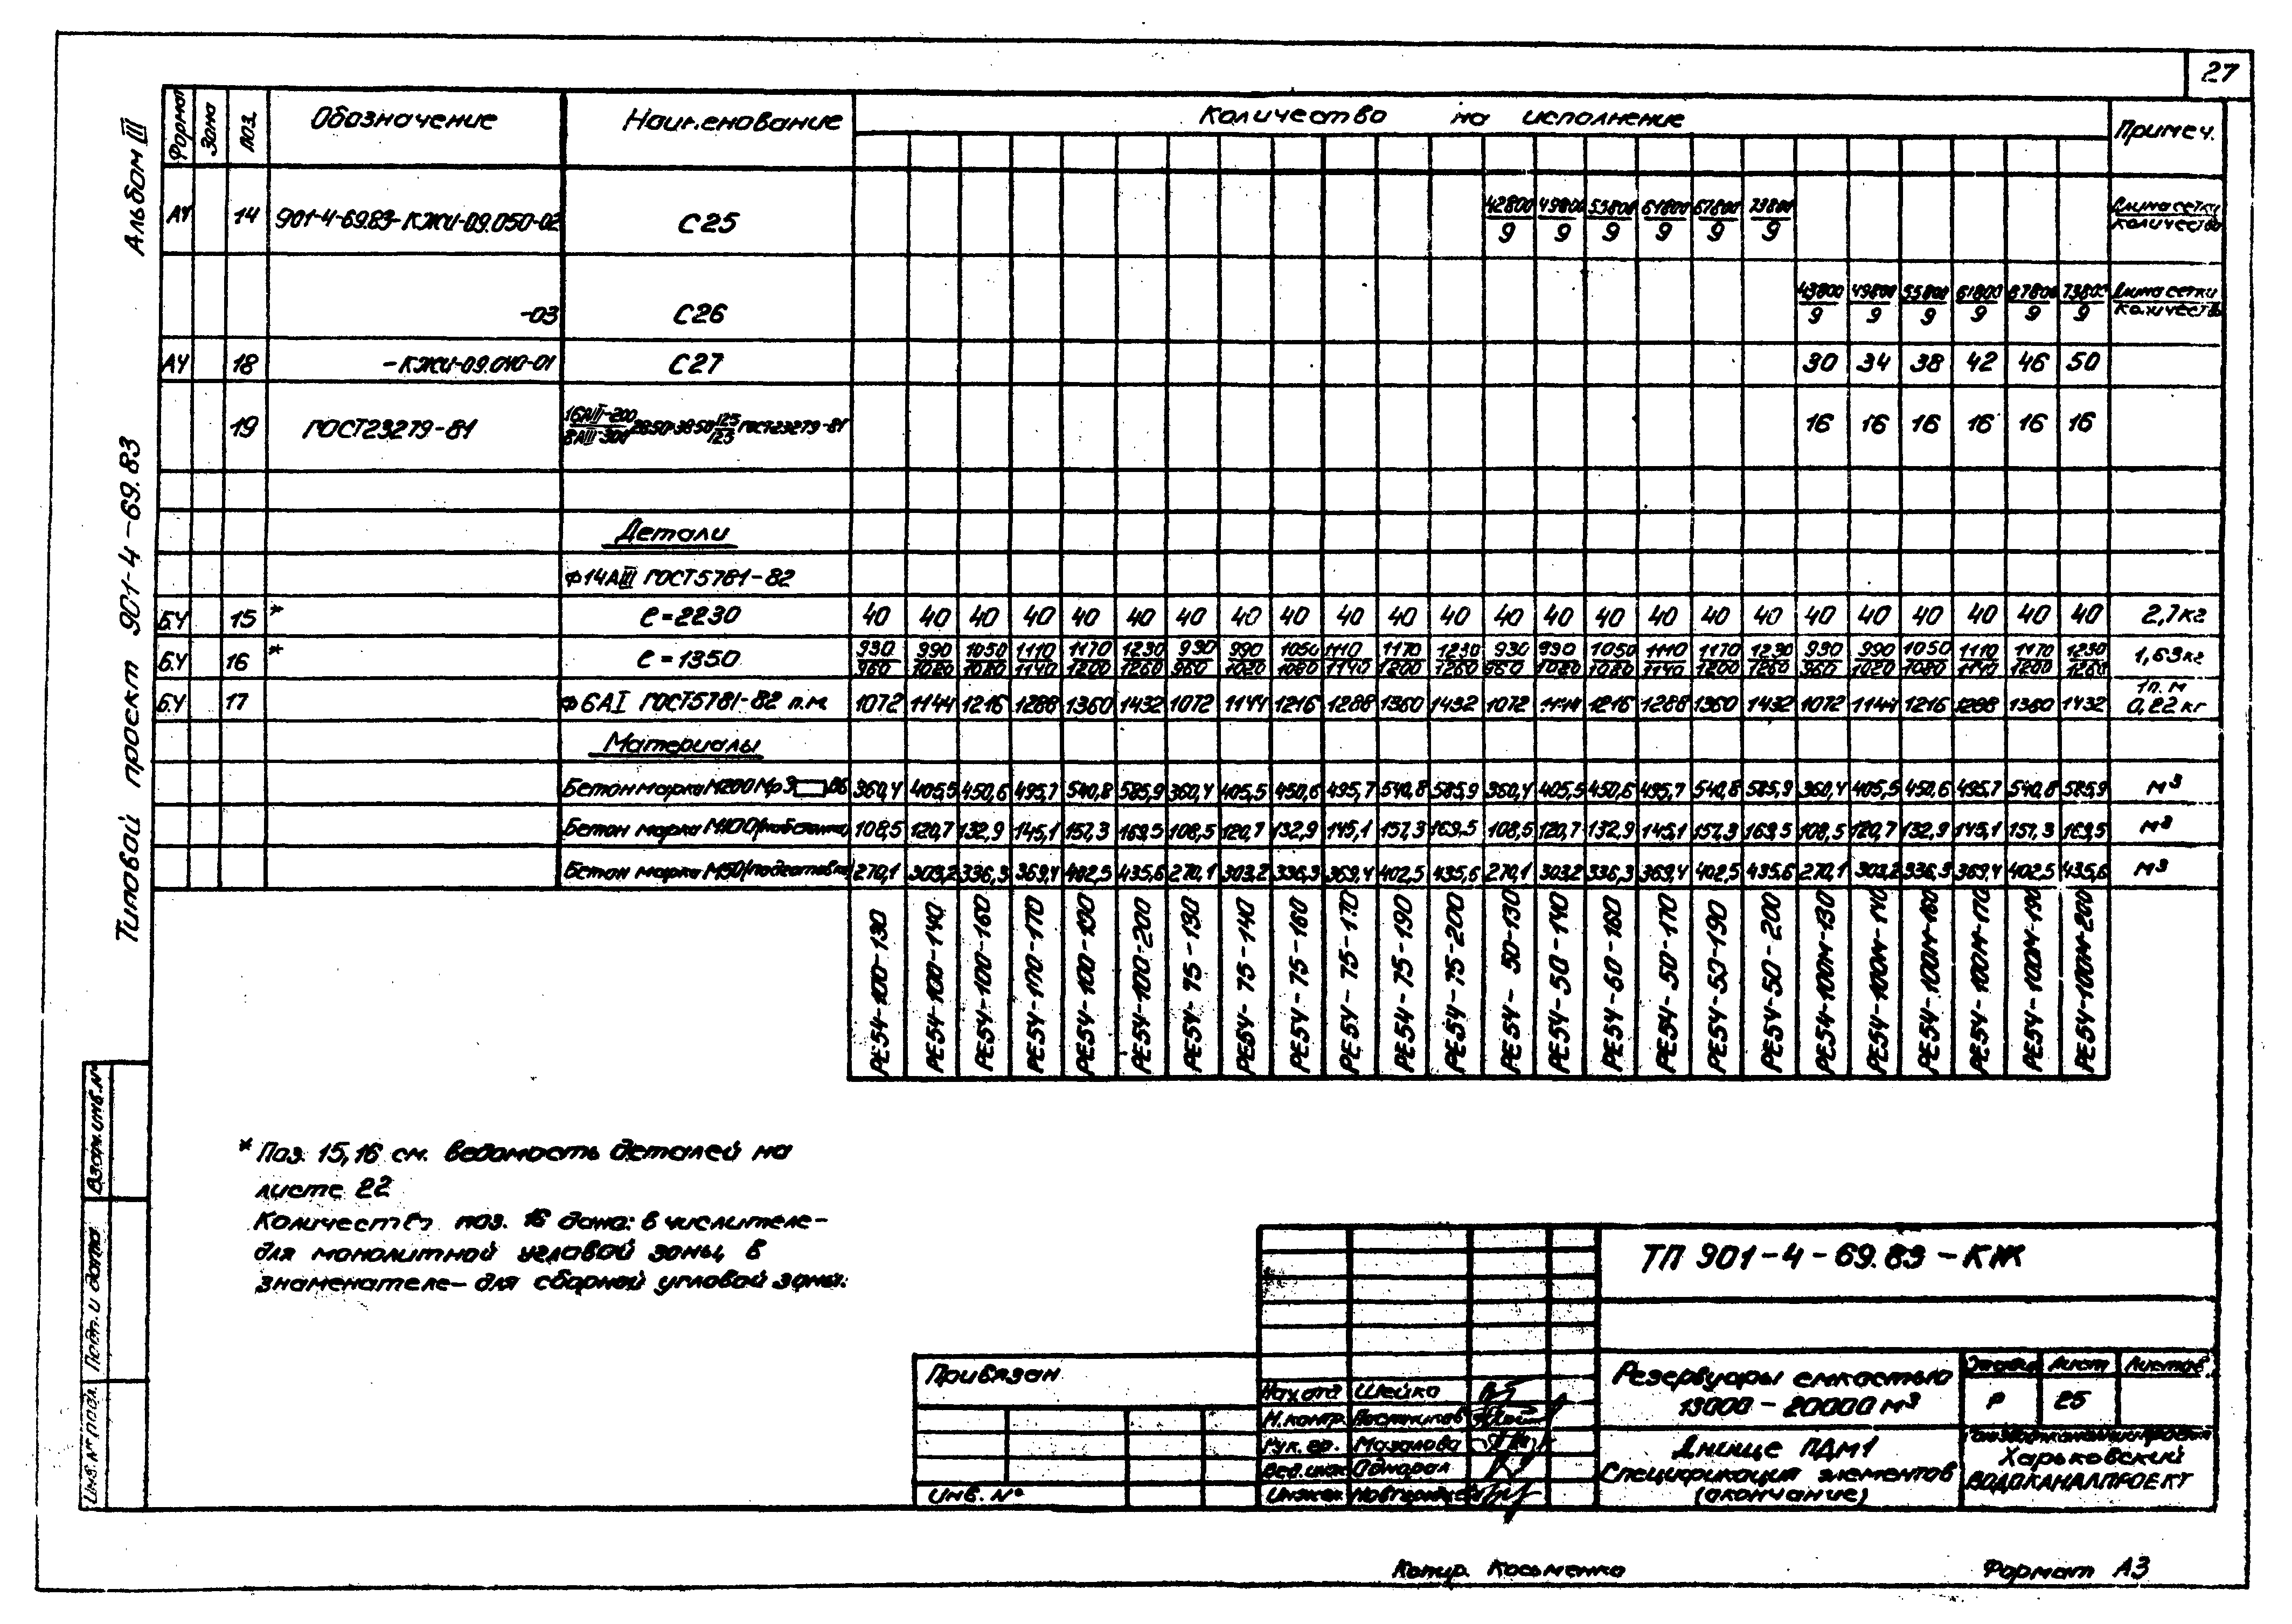 27
Альбом III
Типовой проект 901-4-69.83
Формат Зона Поз. Обозначение Наименование Количество на исполнение Примеч.
А4 14 901-4-69.83-КЖИ-09.050-02 С25 42800/9 49800/9 55800/9 61800/9 67800/9 73800/9 Длина сетки/количество
-03 С26 43800/9 49800/9 55800/9 61800/9 67800/9 73800/9 Длина сетки/количество
А4 18 -КЖИ-09.040-01 С27 30 34 38 42 46 50
19 ГОСТ23279-81 16АIII-200/8АIII-300 2850×3850 125/125 ГОСТ23279-81 16 16 16 16 16 16
Детали
Ф14АIII ГОСТ5781-82
Б.Ч 15 * ℓ=2230 40 40 40 40 40 40 40 40 40 40 40 40 40 40 40 40 40 40 40 40 40 40 40 40 2,7кг
Б.Ч 16 * ℓ=1350 930/960 990/1020 1050/1080 1110/1140 1170/1200 1230/1260 930/960 990/1020 1050/1080 1110/1140 1170/1200 1230/1260 930/960 990/1020 1050/1080 1110/1140 1170/1200 1230/1260 930/960 990/1020 1050/1080 1110/1140 1170/1200 1230/1260 1,63кг
Б.Ч 17 Ф6АI ГОСТ5781-82 п.м. 1072 1144 1216 1288 1360 1432 1072 1144 1216 1288 1360 1432 1072 1144 1216 1288 1360 1432 1072 1144 1216 1288 1360 1432 1п.м 0,22кг
Материалы
Бетон марка М200 Мрз В6 360,4 405,5 450,6 495,7 540,8 585,9 360,4 405,5 450,6 495,7 540,8 585,9 360,4 405,5 450,6 495,7 540,8 585,9 360,4 405,5 450,6 495,7 540,8 585,9 м3
Бетон марка М100 (набетонка) 108,5 120,7 132,9 145,1 157,3 169,5 108,5 120,7 132,9 145,1 157,3 169,5 108,5 120,7 132,9 145,1 157,3 169,5 108,5 120,7 132,9 145,1 157,3 169,5 м3
Бетон марка М50 (подготовка) 270,1 303,2 336,3 369,4 402,5 435,6 270,1 303,2 336,3 369,4 402,5 435,6 270,1 303,2 336,3 369,4 402,5 435,6 270,1 303,2 336,3 369,4 402,5 435,6 м3
РЕ54-100-130
РЕ54-100-140
РЕ54-100-160
РЕ54-100-170
РЕ54-100-190
РЕ54-100-200
РЕ54-75-130
РЕ54-75-140
РЕ54-75-160
РЕ54-75-170
РЕ54-75-190
РЕ54-75-200
РЕ54-50-130
РЕ54-50-140
РЕ54-60-160
РЕ54-50-170
РЕ54-50-190
РЕ54-50-200
РЕ54-100М-130
РЕ54-100М-140
РЕ54-100М-160
РЕ54-100М-170
РЕ54-100М-190
РЕ54-100М-200
* Поз. 15,16 см. ведомость деталей на
листе 22
Количество поз. 16 дано: в числителе-
для монолитной угловой зоны, в
знаменателе- для сборной угловой зоны.
Взам.инв.№
Подп. и дата
Инв.№ подл.
ТП 901-4-69.83-КЖ
Привязан
Инв. №
Нач.отд Шейко
Н.контр.
Рук.гр. Мазалова
Вед.инж Однорал
Инжен.
Резервуары емкостью
13000-20000 м3
Стадия Лист Листов
Р 25
Днище ПДм1
Спецификация элементов
(окончание)
Харьковский
ВОДОКАНАЛПРОЕКТ
Копир. Косьменко
Формат А3